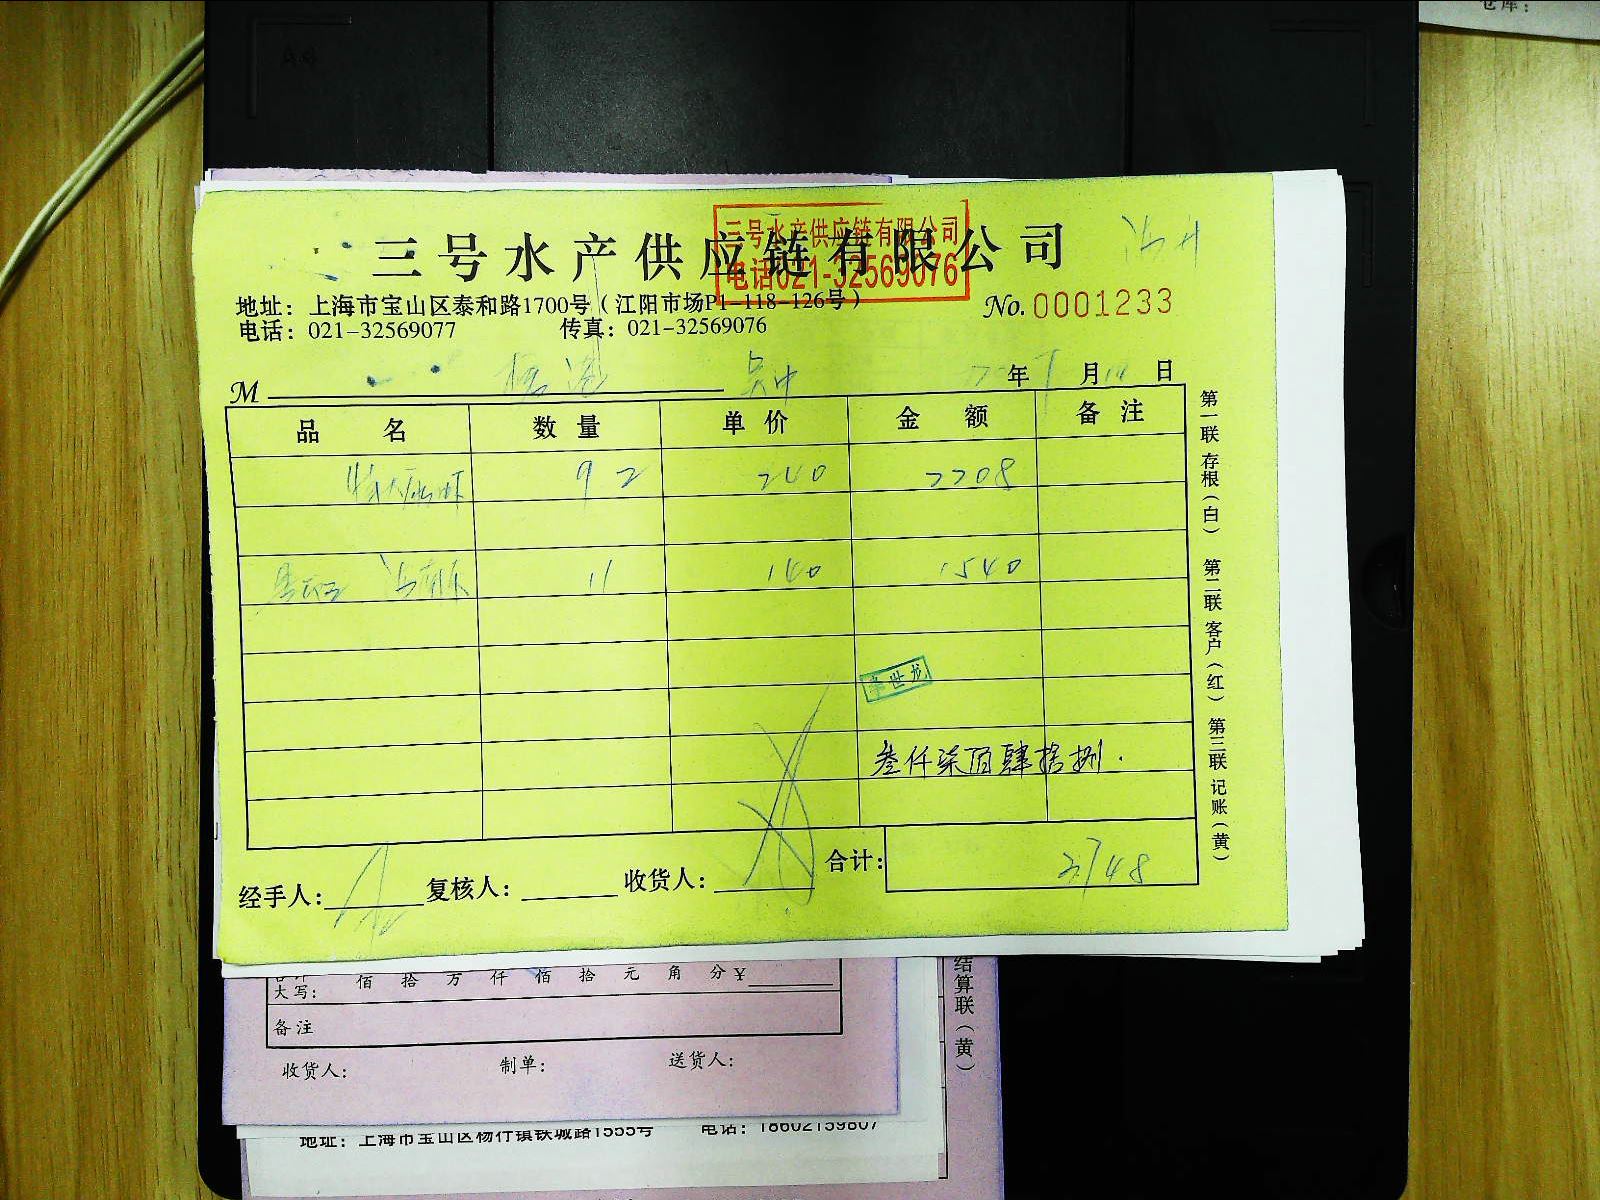 仓库：
三号水产供应链有限公司
三号水产供应链有限公司
电话021-32569076
地址：上海市宝山区泰和路1700号（江阳市场P1-118-126号）
No. 0001233
电话：021-32569077 传真：021-32569076
M 年 月 日
品名 数量 单价 金额 备注
92 240 2208
11 140 1540
世龙
叁仟柒佰肆拾捌.
合计: 3748
经手人: 复核人: 收货人:
第一联 存根（白） 第二联 客户（红） 第三联 记账（黄）
大写: 佰 拾 万 仟 佰 拾 元 角 分 ¥
备注
收货人: 制单: 送货人:
结算联（黄）
地址：上海市宝山区杨行镇铁城路1555号 电话：18602159807